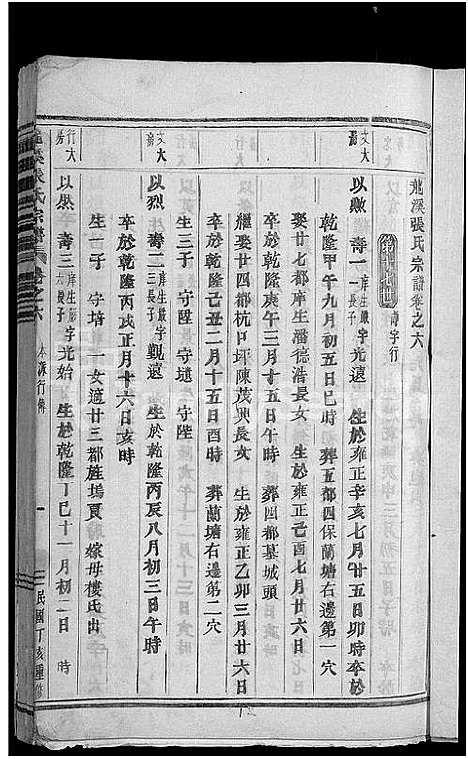 龍溪張氏宗譜卷之六
壽字行
文大房
以煦 壽一 庠生嚴長子 字光遠 生於雍正辛亥七月廿五日卯時 卒於
乾隆甲午九月初五日巳時 葬五都四保蘭塘右邊第一穴
娶廿七都庠生潘德浩長女 生於雍正己酉七月廿六日
卒於乾隆庚午三月十五日午時 葬四都墓城頭
繼娶廿四都杭口坪陳茂興長女 生於雍正乙卯三月廿六日
卒於乾隆己丑二月十五日酉時 葬蘭塘右邊第二穴
生三子 守陞 守瑝 守陛
文大房
以烈 壽二 庠生嚴三長子 字覲遠 生於乾隆丙辰八月初三日午時
卒於乾隆丙戌正月十六日亥時
生一子 守培 一女適廿三都旌塢賈 嫁母樓氏出
行大房
以熙 壽三 庠生嚴六長子 字光始 生於乾隆丁巳十一月初二日 時
龍溪張氏宗譜 卷之六 本派行傳 一 民國丁亥重修
12